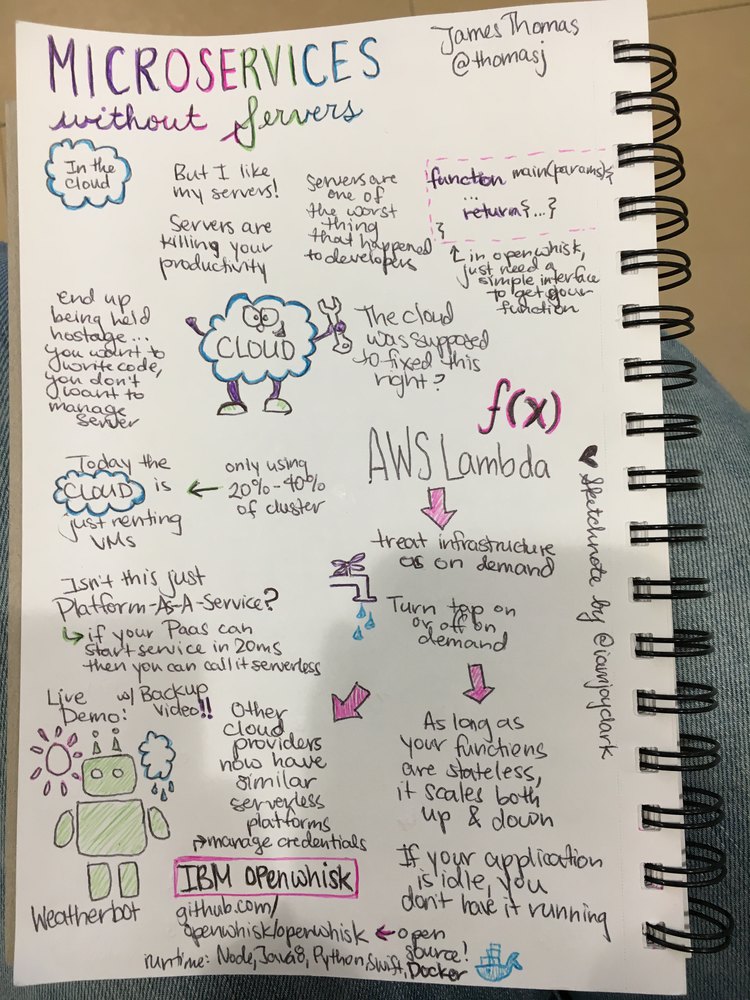 MICROSERVICES
without Servers
James Thomas
@thomasj
In the
cloud
But I like
my servers!
Servers are
killing your
productivity
Servers are
one of
the worst
thing
that happened
to developers
function main(params){
...
return {...}
}
in openwhisk,
just need a
simple interface
to get your
function
end up
being held
hostage...
you want to
write code,
you don't
want to
manage
server
CLOUD
The cloud
was supposed
to fixed this
right?
f(x)
AWS Lambda
Today the
CLOUD is
just renting
VMs
only using
20%-40%
of cluster
treat infrastructure
as on demand
Turn tap on
or off on
demand
Isn't this just
Platform-As-A-Service?
if your Paas can
start service in 20ms
then you can call it serverless
Live w/ Backup
Demo: video!!
Weatherbot
Other
cloud
providers
now have
similar
serverless
platforms
manage credentials
As long as
your functions
are stateless,
it scales both
up & down
If your application
is idle, you
don't have it running
IBM Openwhisk
github.com/
openwhisk/openwhisk
open
source!
runtime: Node, Java8, Python, Swift, Docker
Sketchnote by @iamjaydark